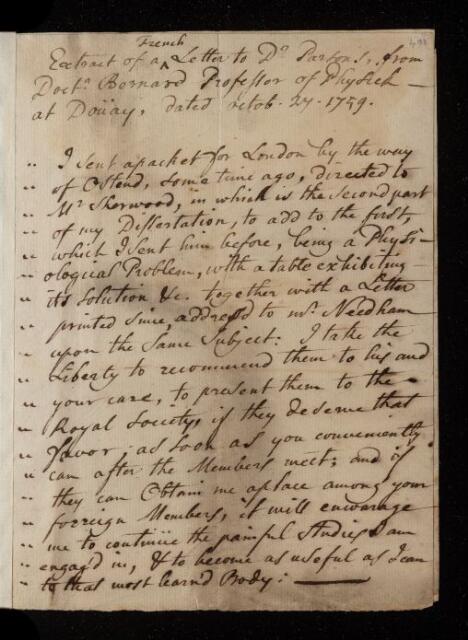 French
Extract of a ^ Letter to Dr. Parsons, from
Doctr. Bernard Professor of Physick —
at Doüay, dated octob. 27. 1759.
" I sent a packet for London by the way
" of Ostend, some time ago, directed to
" Mr. Sherwood, in which is the second part
" of my Dissertation, to add to the first,
" which I sent him before, being a Physi-
" ological Problem, with a table exhibiting
" its Solution &c. together with a Letter
" printed since, addressed to mr. Needham
" upon the Same Subject: I take the
" Liberty to recommend them to his and
" your care, to present them to the
" Royal Society, if they deserve that
" favor as soon as you conveniently
" can after the Members meet; and if
" they can Obtain me a place among your
" foreign Members, it will encourage
" me to continüe the painful Studies I am
" engag'd in, & to become as useful as I can
" to that most learn'd Body: —